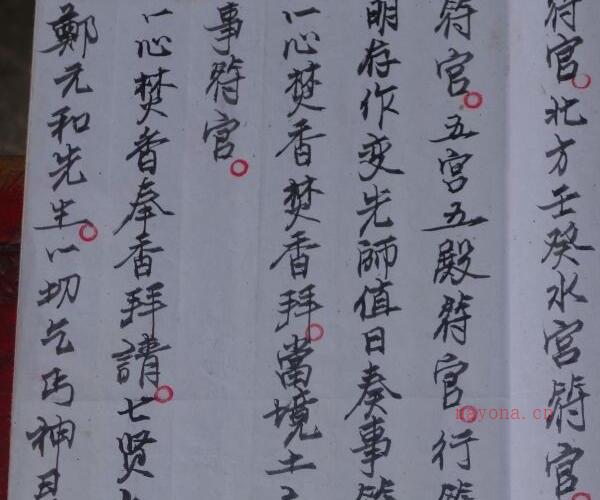 符官。北方壬癸水宮符官。
符官。五宫五殿符官。行符
明存作变先師值日奏事符
一心焚香焚香拜。當境土
事符官。
一心焚香奉香拜請。七贤
鄭元和先生。一切乞丐神
nayona.cn